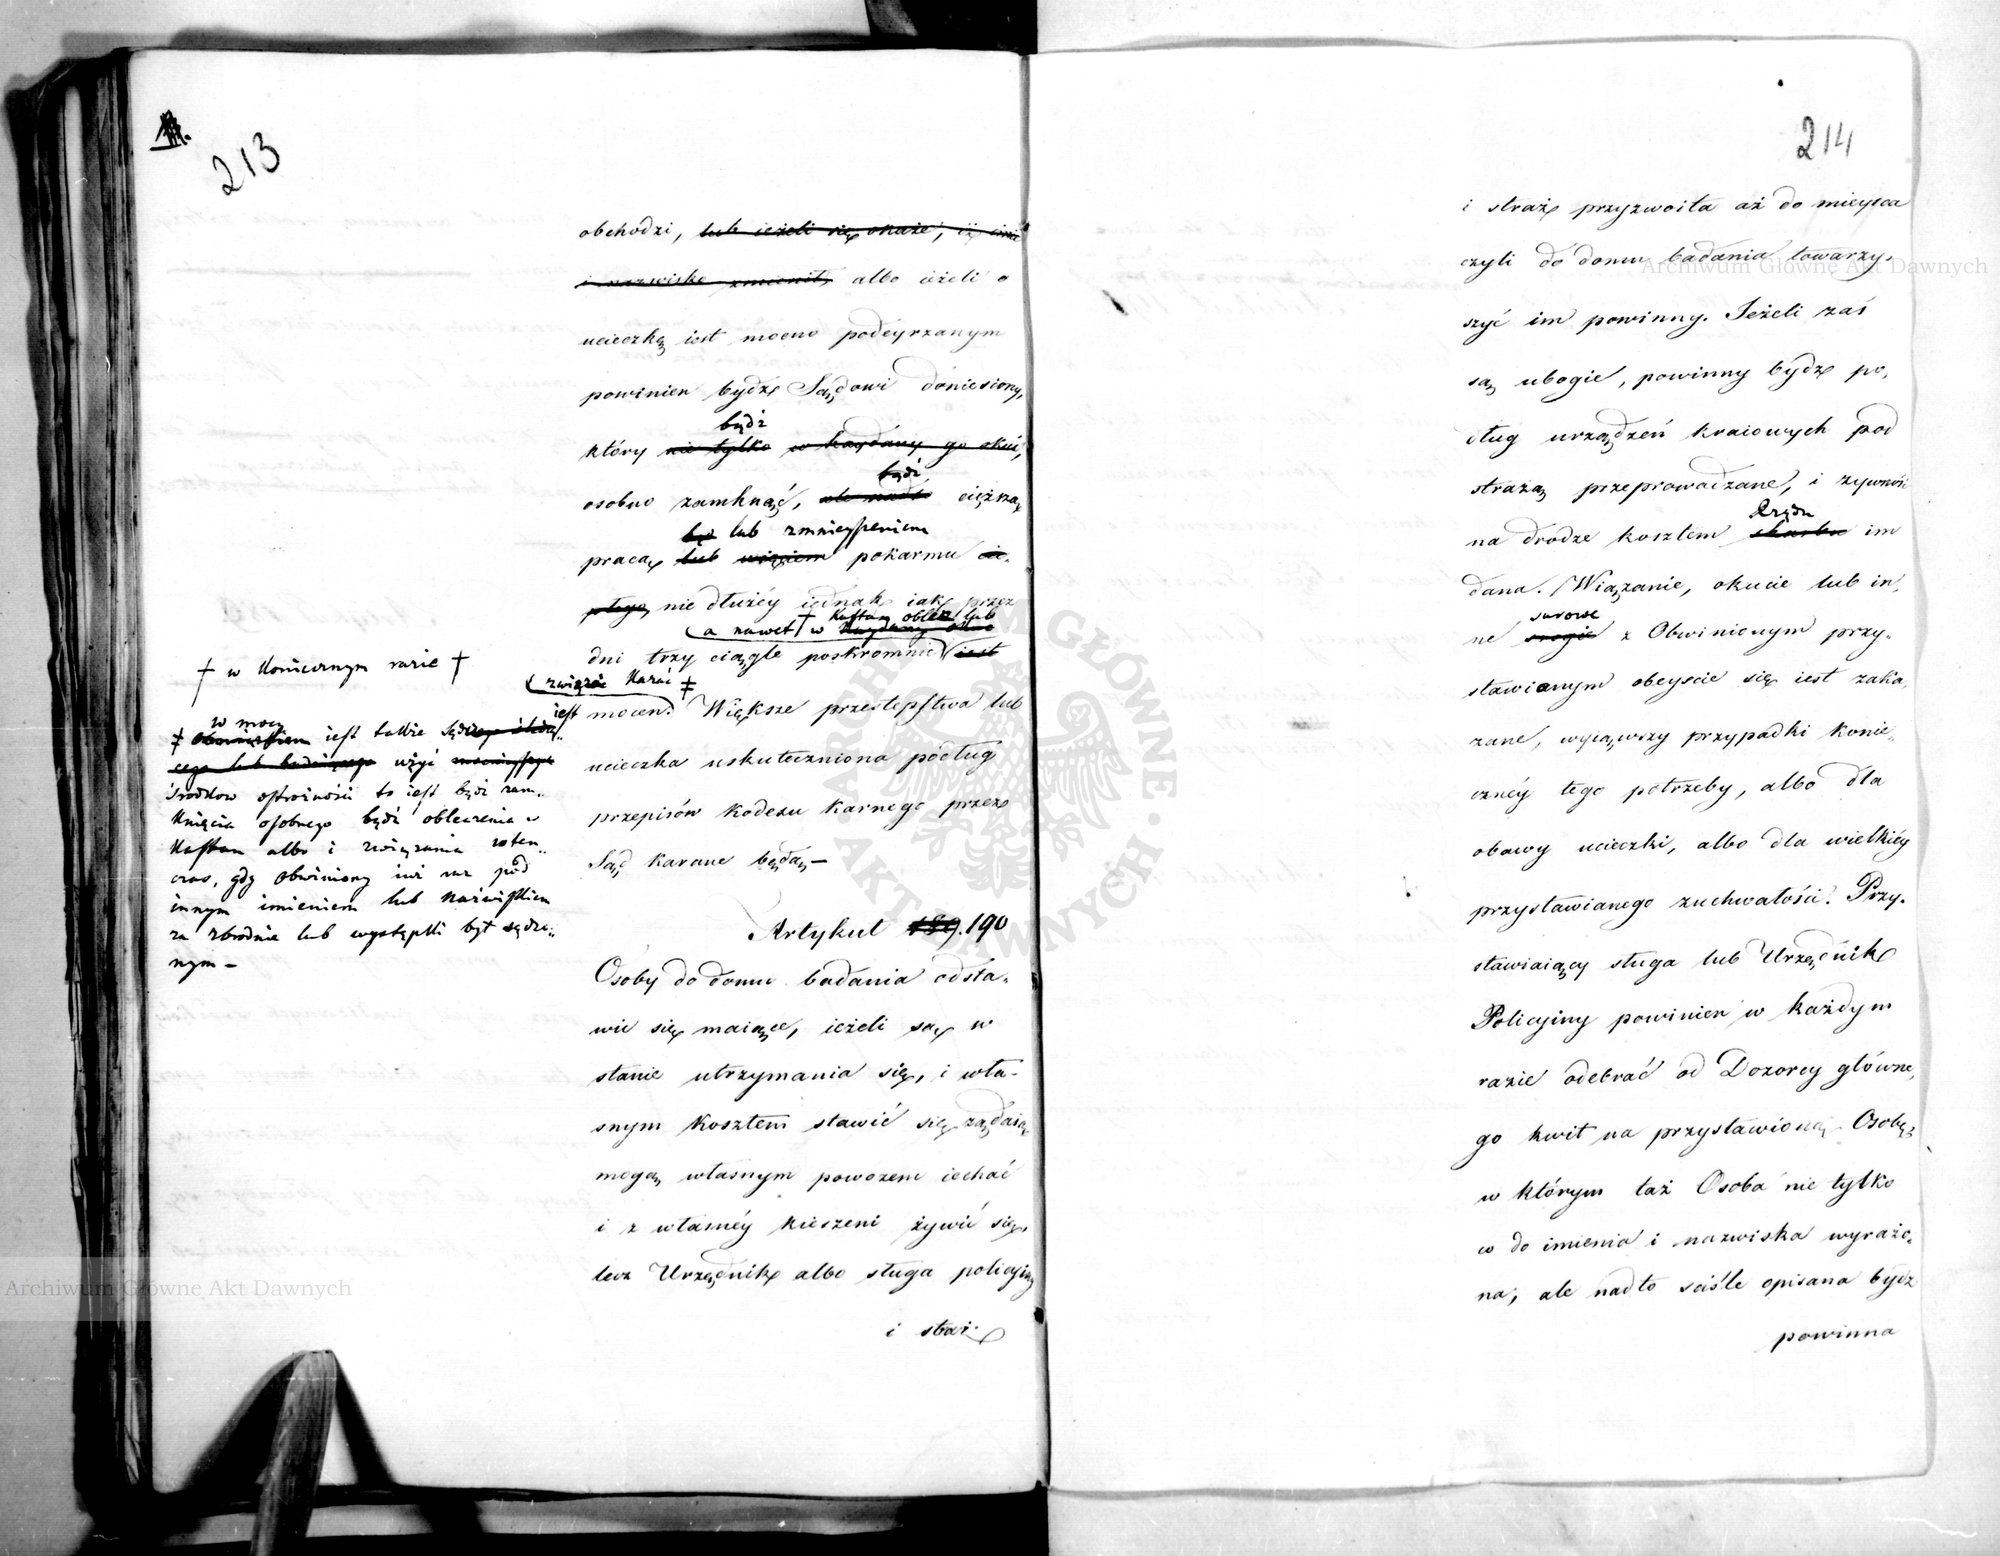 213
obchodzi, lub ieżeli się okaże, iż imie
i nazwisko zmienił, albo ieżeli o
ucieczkę iest mocno podeyrzanym
powinien bydź Sądowi doniesiony,
bądź
który nie tylko w kaydany go okuć,
bądź
osobno zamknąć, ale nadto ciężką
lub zmnieyszeniem
pracą lub pokarmu cie-
płego, nie dłużéy iednak iak przez
a nawet † w Kaftan oblec lub
dni trzy ciągle poskromnić iest
związać kazać ‡
iest mocen. Większe przestępstwa lub
ucieczka uskuteczniona podług
przepisów kodexu karnego przez
Sąd karane będą —
† w koniecznym razie †
w mocy
‡ iest także
cego lub badaiącego użyć
środkow ostrożności to iest bądź zam-
knięcia osobnego bądź obleczenia w
Kaftan albo i związania
czas, gdy obwiniony iuż raz pod
innym imieniem lub nazwiskiem
za zbrodnie lub występki był sądzo-
nym —
Artykuł 189. 190
Osoby do domu badania odsta-
wić się maiące, ieżeli są w
stanie utrzymania się, i wła-
snym kosztem stawić się żądaią
mogą własnym powozem iechać
i z własnéy kieszeni żywić się,
lecz Urzędnik albo sługa policyiny
i straż
214
i straż przyzwoita aż do mieysca
czyli do domu badania towarzy-
szyć im powinny. Jeżeli zaś
są ubogie, powinny bydź po-
dług urządzeń kraiowych pod
strażą przeprowadzane, i żywność
Rządu
na drodze kosztem skarbu im
dana. Wiązanie, okucie lub in-
surowe
ne srogie z Obwinionym przy-
stawionym obeyscie się iest zaka-
zane, wyiąwszy przypadki konie-
cznéy tego potrzeby, albo dla
obawy ucieczki, albo dla wielkiéy
przystawianego zuchwałości. Przy-
stawiaiący sługa lub Urzędnik
Policyiny powinien w każdym
razie odebrać od Dozorcy główne-
go kwit na przystawioną Osobę,
w którym taż Osoba nie tylko
co do imienia i nazwiska wyrażo-
na, ale nadto ściśle opisana bydź
powinna
Archiwum Główne Akt Dawnych
Archiwum Główne Akt Dawnych
ARCHIWUM GŁÓWNE AKT DAWNYCH